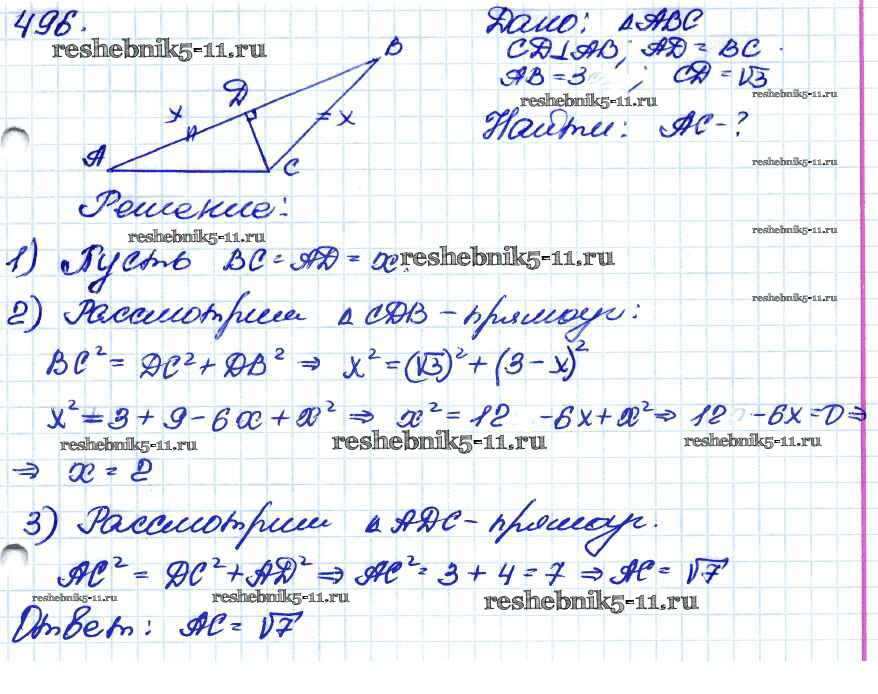 496.
reshebnik5-11.ru
Дано: △ABC
CD⊥AB; AD = BC.
AB = 3 ; CD = √3
reshebnik5-11.ru
reshebnik5-11.ru
Найти: AC - ?
reshebnik5-11.ru
B
D
x
= x
A
C
Решение:
reshebnik5-11.ru
reshebnik5-11.ru
1) Пусть BC = AD = x.
reshebnik5-11.ru
reshebnik5-11.ru
2) Рассмотрим △ CDB - прямоуг:
BC² = DC² + DB² ⇒ x² = (√3)² + (3 - x)²
x² = 3 + 9 - 6x + x² ⇒ x² = 12 - 6x + x² ⇒ 12 - 6x = 0 ⇒
reshebnik5-11.ru
reshebnik5-11.ru
reshebnik5-11.ru
⇒ x = 2
3) Рассмотрим △ ADC - прямоуг.
AC² = DC² + AD² ⇒ AC² = 3 + 4 = 7 ⇒ AC = √7
reshebnik5-11.ru
reshebnik5-11.ru
reshebnik5-11.ru
Ответ: AC = √7